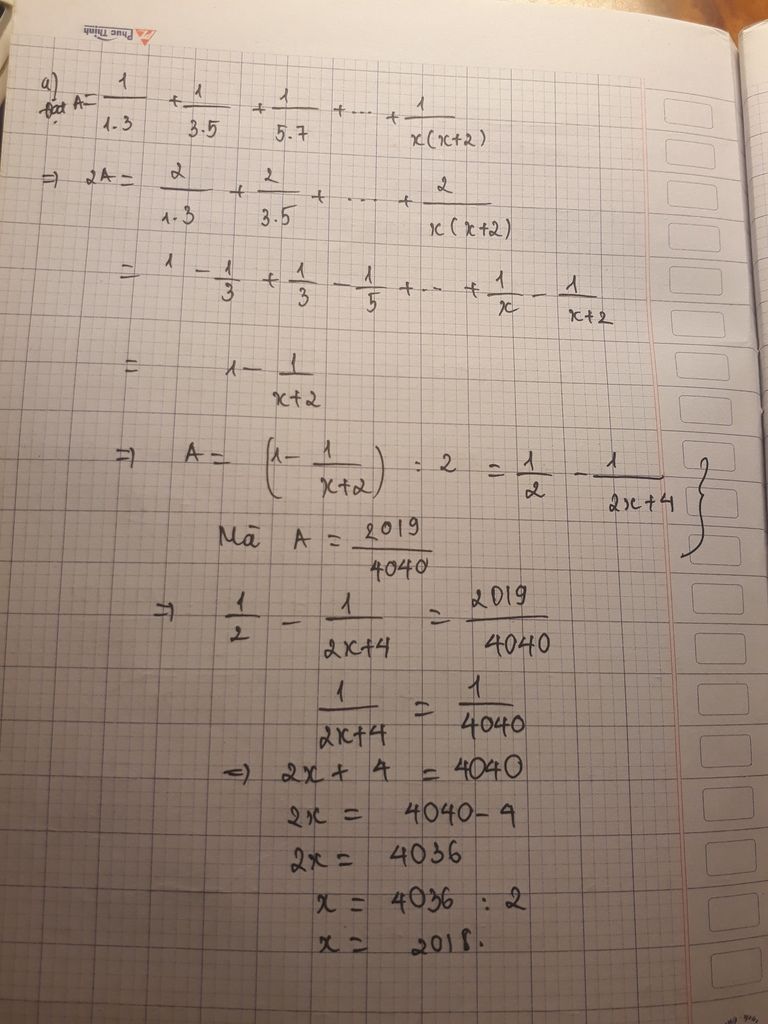 Phúc Thịnh
a)
Đặt A = 1/1.3 + 1/3.5 + 1/5.7 + ... + 1/x(x+2)
⇒ 2A = 2/1.3 + 2/3.5 + ... + 2/x(x+2)
= 1 - 1/3 + 1/3 - 1/5 + ... + 1/x - 1/x+2
= 1 - 1/x+2
⇒ A = (1 - 1/x+2) : 2 = 1/2 - 1/2x+4 }
Mà A = 2019/4040
⇒ 1/2 - 1/2x+4 = 2019/4040
1/2x+4 = 1/4040
⇒ 2x + 4 = 4040
2x = 4040 - 4
2x = 4036
x = 4036 : 2
x = 2018.